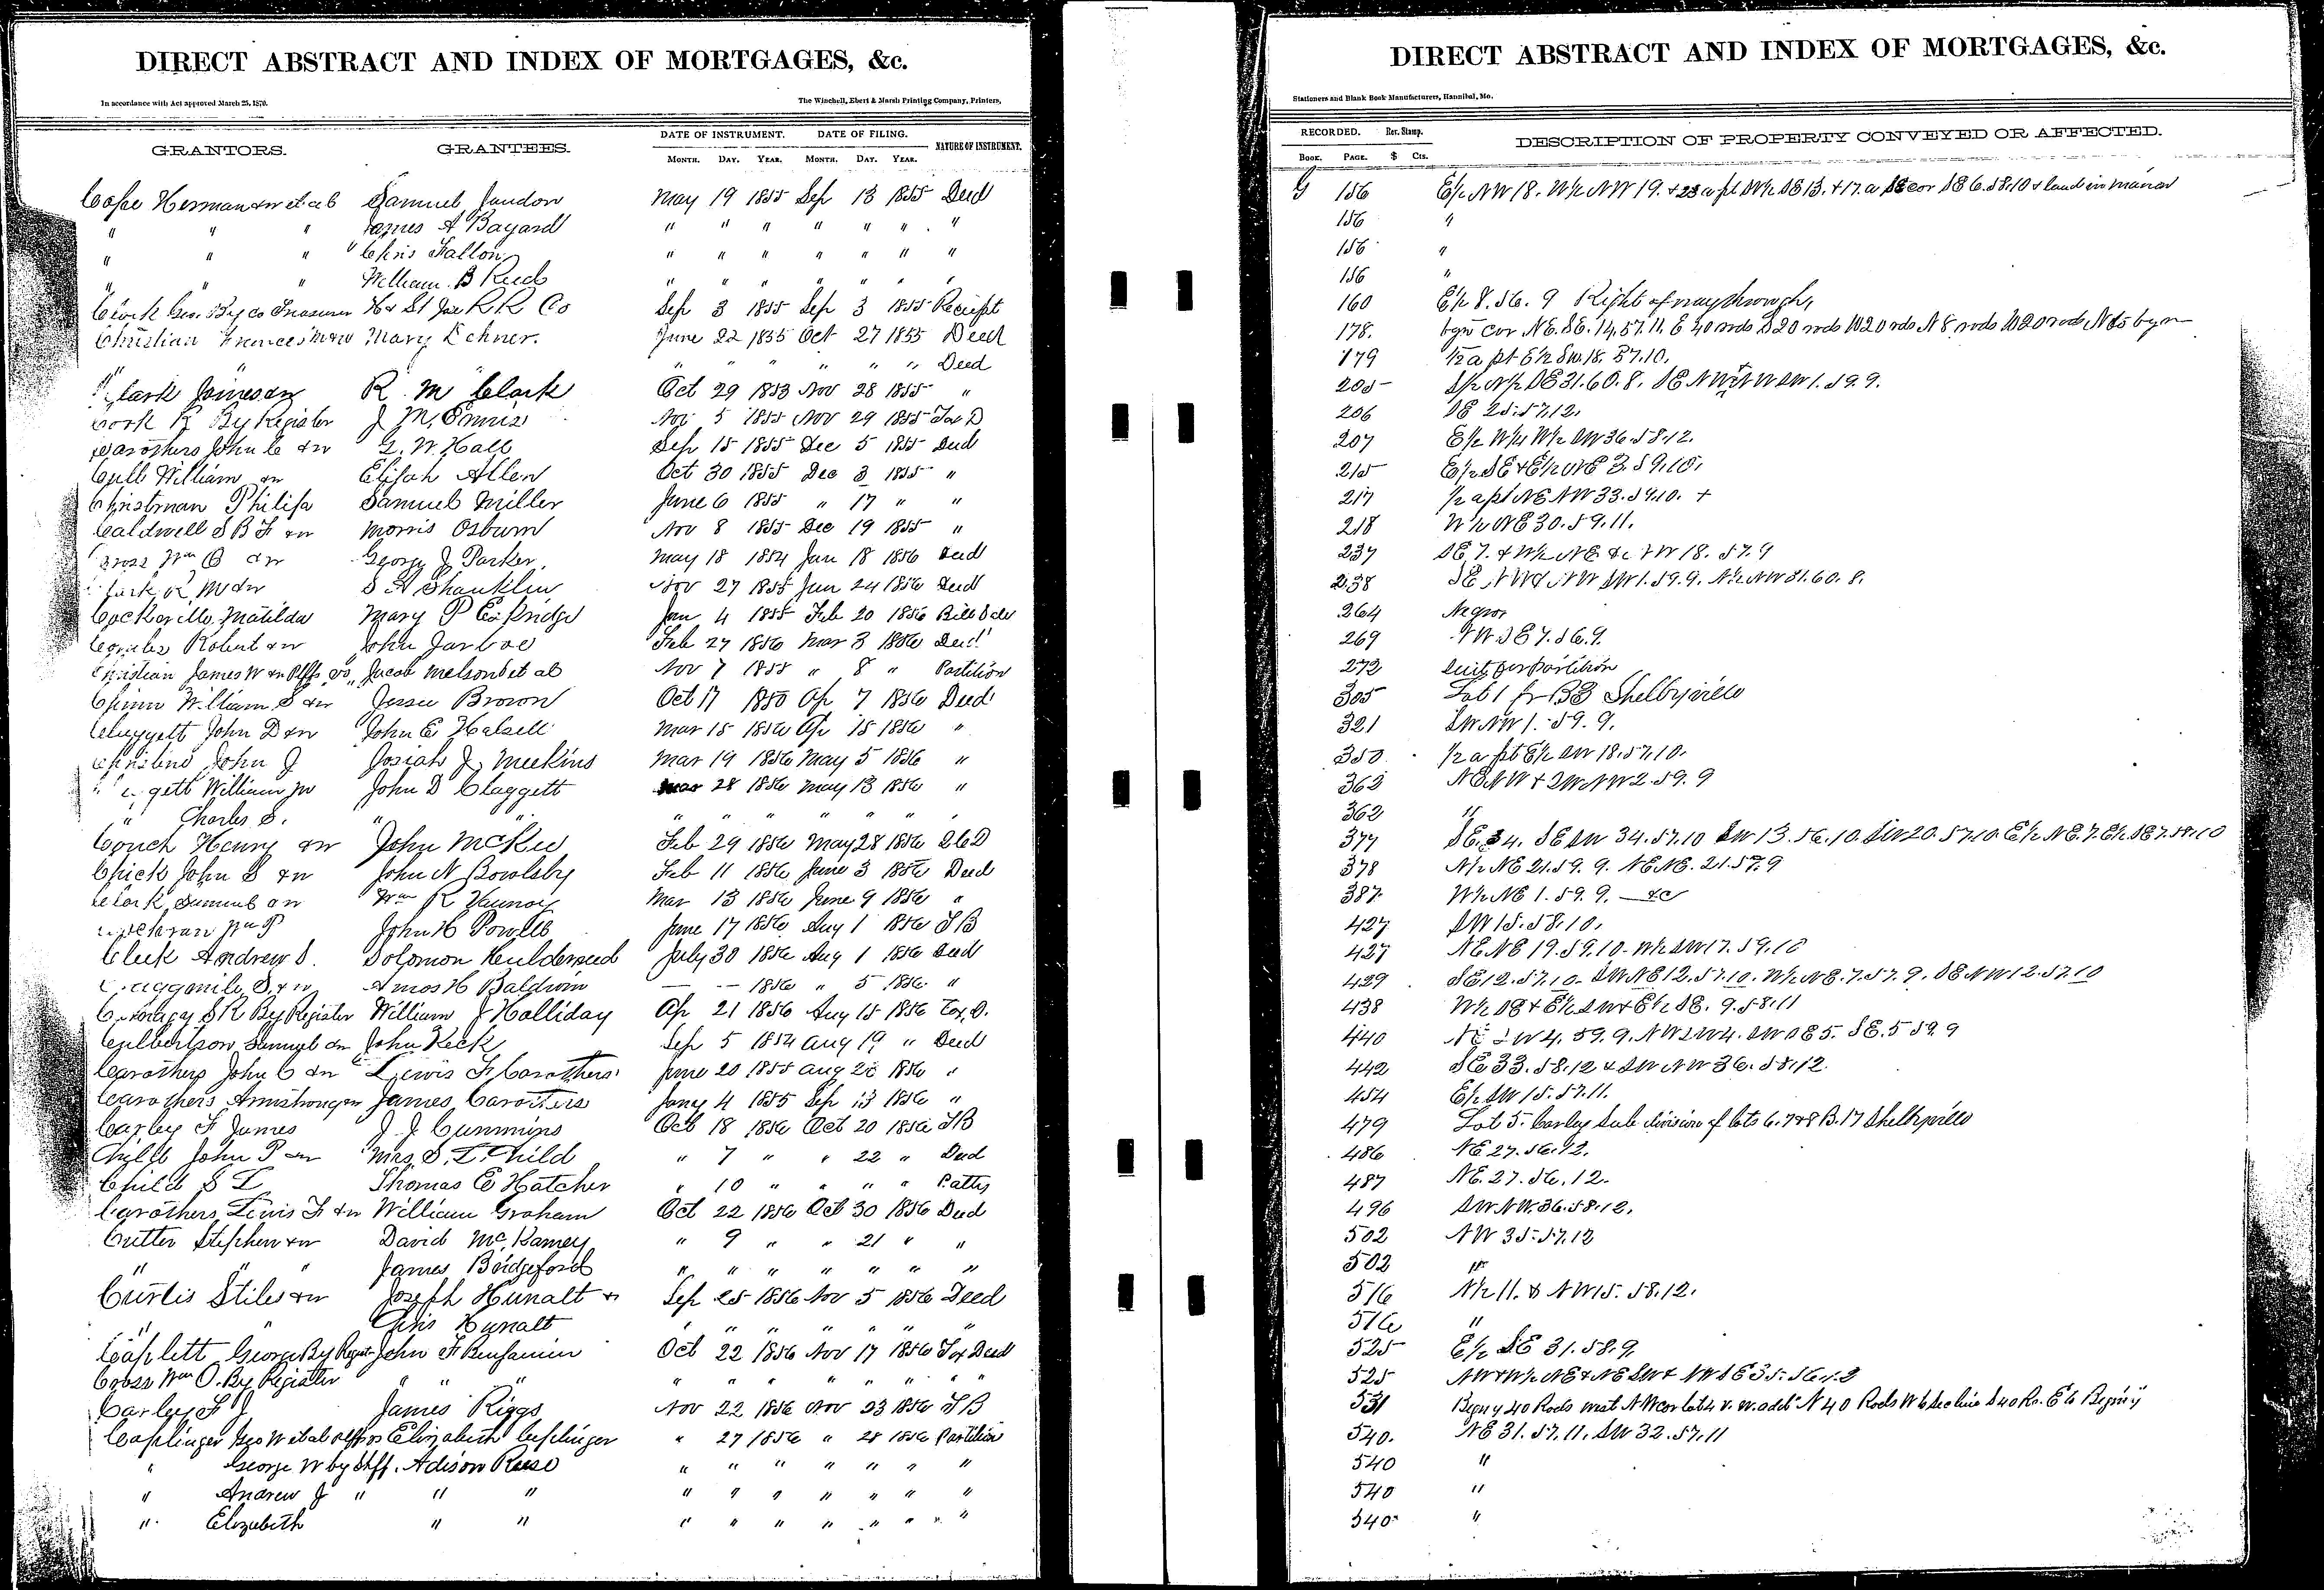 DIRECT ABSTRACT AND INDEX OF MORTGAGES, &c.
In accordance with Act approved March 25, 1870. The Winchell, Ebert & Marsh Printing Company, Printers,
GRANTORS. GRANTEES. DATE OF INSTRUMENT. DATE OF FILING. NATURE OF INSTRUMENT.
MONTH. DAY. YEAR. MONTH. DAY. YEAR.
Samuel Jaudon May 19 1855 Sep 13 1855 Deed
" " " James A Bayard " " " " " " "
" " " " Fallon " " " " " " "
" " William B Reed " " " " " " "
H & St Joe R R Co Sep 3 1855 Sep 3 1855 Receipt
Christian Mary June 22 1855 Oct 27 1855 Deed
" " " " " " Deed
R M Clark Oct 29 1853 Nov 28 1855 "
By Register J M Ennis Nov 5 1855 Nov 29 1855 Tax D
Carothers John C & w G. W. Hall Sep 15 1855 Dec 5 1855 Deed
William & w Elijah Allen Oct 30 1855 Dec 3 1855 "
Christman Philip Samuel Miller June 6 1855 " 17 " "
Caldwell S B F & w Morris Osburn Nov 8 1855 Dec 19 1855 "
Cross Wm O & w George J Parker. May 18 1854 Jan 18 1856 Deed
Clark R M & w S A Shanklin Nov 27 1855 Jan 24 1856 Deed
Matilda Mary P Eskridge Jan 4 1855 Feb 20 1856 Bill Sale
Robert & w John Jarboe Feb 27 1856 Mar 3 1856 Deed
Christian James W & w Plffs vs Jacob et al Nov 7 1855 " 8 " Partition
Chinn William S & w Jesse Brown Oct 17 1850 Ap 7 1856 Deed
John D & w John E Halsell Mar 15 1856 Ap 15 1856 "
John J Josiah J. Meekins Mar 19 1856 May 5 1856 "
William John D Claggett Mar 28 1856 May 13 1856 "
" Charles S. " " " " " " " "
Couch Henry & w John McKee Feb 29 1856 May 28 1856
Chick John S & w John N Bowlsby Feb 11 1856 June 3 1856 Deed
Clark Samuel & w Wm R Mar 13 1856 June 9 1856 "
John H Powell June 17 1856 Aug 1 1856 T B
Cleek Andrew S. Solomon July 30 1856 Aug 1 1856 Deed
Amos H Baldwin — -- 1856 " 5 1856 "
S R By Register William J Holliday Ap 21 1856 Aug 15 1856 Tax D.
Culbertson Samuel & w John Keck Sep 5 1854 Aug 19 " Deed
Carothers John C & w Lewis F. Carothers June 20 1855 Aug 1856 "
Carothers Armstrong & w James Carothers Jany 4 1855 Sep 13 1856 "
Carley F James J. J. Cummins Oct 18 1856 Oct 20 1856 T B
Child John P & w Mrs. S. L. Child " 7 " " 22 " Deed
Child S L Thomas E Hatcher " 10 " " " " P atty
Carothers Lewis F & w William Graham Oct 22 1856 Oct 30 1856 Deed
Cutter Stephen & w David McKamey " 9 " " 21 " "
" " " James Bridgeford " " " " " " "
Curtis Stiles & w Joseph Hunalt & Sep 25 1856 Nov 5 1856 Deed
" " Hunalt " " " " " " "
Caplett George By Regist John F Benjamin Oct 22 1856 Nov 17 1856 Tax Deed
Cross Wm O. By Register " " " " " " " " " "
Carley F J James Riggs Nov 22 1856 Nov 23 1856 T B
Caplinger Geo W et al Plffs vs Elizabeth Caplinger " 27 1856 " 28 1856 Partition
" George W by Shff. Adison Reese " " " " " " "
" Andrew J " " " " " " " " " "
" Elizabeth " " " " " " " " "
DIRECT ABSTRACT AND INDEX OF MORTGAGES, &c.
Stationers and Blank Book Manufacturers, Hannibal, Mo.
RECORDED. Rev. Stamp. DESCRIPTION OF PROPERTY CONVEYED OR AFFECTED.
BOOK. PAGE. $ Cts.
G 156 E½ NW 18. W½ NW 19. & land in Marion
156 "
156 "
156 "
160 E½ 8. 56. 9 Right of way through,
178. cor N.E. S.E. 14. 57. 11. E 40 rods S 20 rods W 20 rds N 8 rods W 20 rods N to
179 ½ a pt E½ SW. 18. 57. 10.
205 S½ N½ SE 31. 60. 8. 1. 59. 9.
206 SE 25. 57. 12.
207 E½ W½ W½ SW 36. 58. 12.
215 E½ SE & E½ NE 3. 59. 10.
217 ½ a pt NE NW 33. 59. 10. +
218 W½ NE 30. 59. 11.
237 SE 7. & W½ NE & NW 18. 57. 9
238 SE NW & NW SW 1. 59. 9. N½ NW 31. 60. 8.
264 Negroe
269 NW SE 7. 56. 9.
272 Suit for Partition
305 Lot 1 fr B 3 Shelbyville
321 SW NW 1. 59. 9.
350 ½ a pt E½ SW 18. 57. 10.
362 NE NW & SW NW 2. 59. 9
362 "
377 SE. 34. SE SW 34. 57. 10 SW 13. 56. 10. SW 20. 57. 10. E½ N.E. 7. E½ SE 7. 58. 10
378 N½ NE 21. 59. 9. NE NE. 21. 57. 9
387. W½ NE 1. 59. 9. — &c
427 SW 15. 58. 10.
427 NE NE 19. 59. 10. W½ SW 17. 59. 10
429 SE 12. 57. 10. SW NE 12. 57. 10. W½ NE. 7. 57. 9. SE NW 12. 57. 10
438 W½ SE & E½ SW & E½ SE. 9. 58. 11
440 4. 59. 9. SW SE 5. SE. 5 59. 9
442 SE 33. 58. 12 & SW NW 36. 58. 12.
454 E½ SW 15. 57. 11.
479 Lot 5. Carley Sub division of lots 6. 7 & 8 B. 17 Shelbyville
486 NE 27. 56. 12.
487 NE. 27. 56. 12.
496 SW NW. 36. 58. 12.
502 NW 35. 57. 12
502 "
516 N½ 11. & NW 15. 58. 12.
516 "
525 E½ SE 31. 58. 9.
525 NW & W½ NE & NE SW & NW SE 35. 56. 12
531 40 Rods west N W cor lot 4 N 40 Rods W to Sec line S 40 Rs. E to
540. NE 31. 57. 11. SW 32. 57. 11
540 "
540 "
540 "